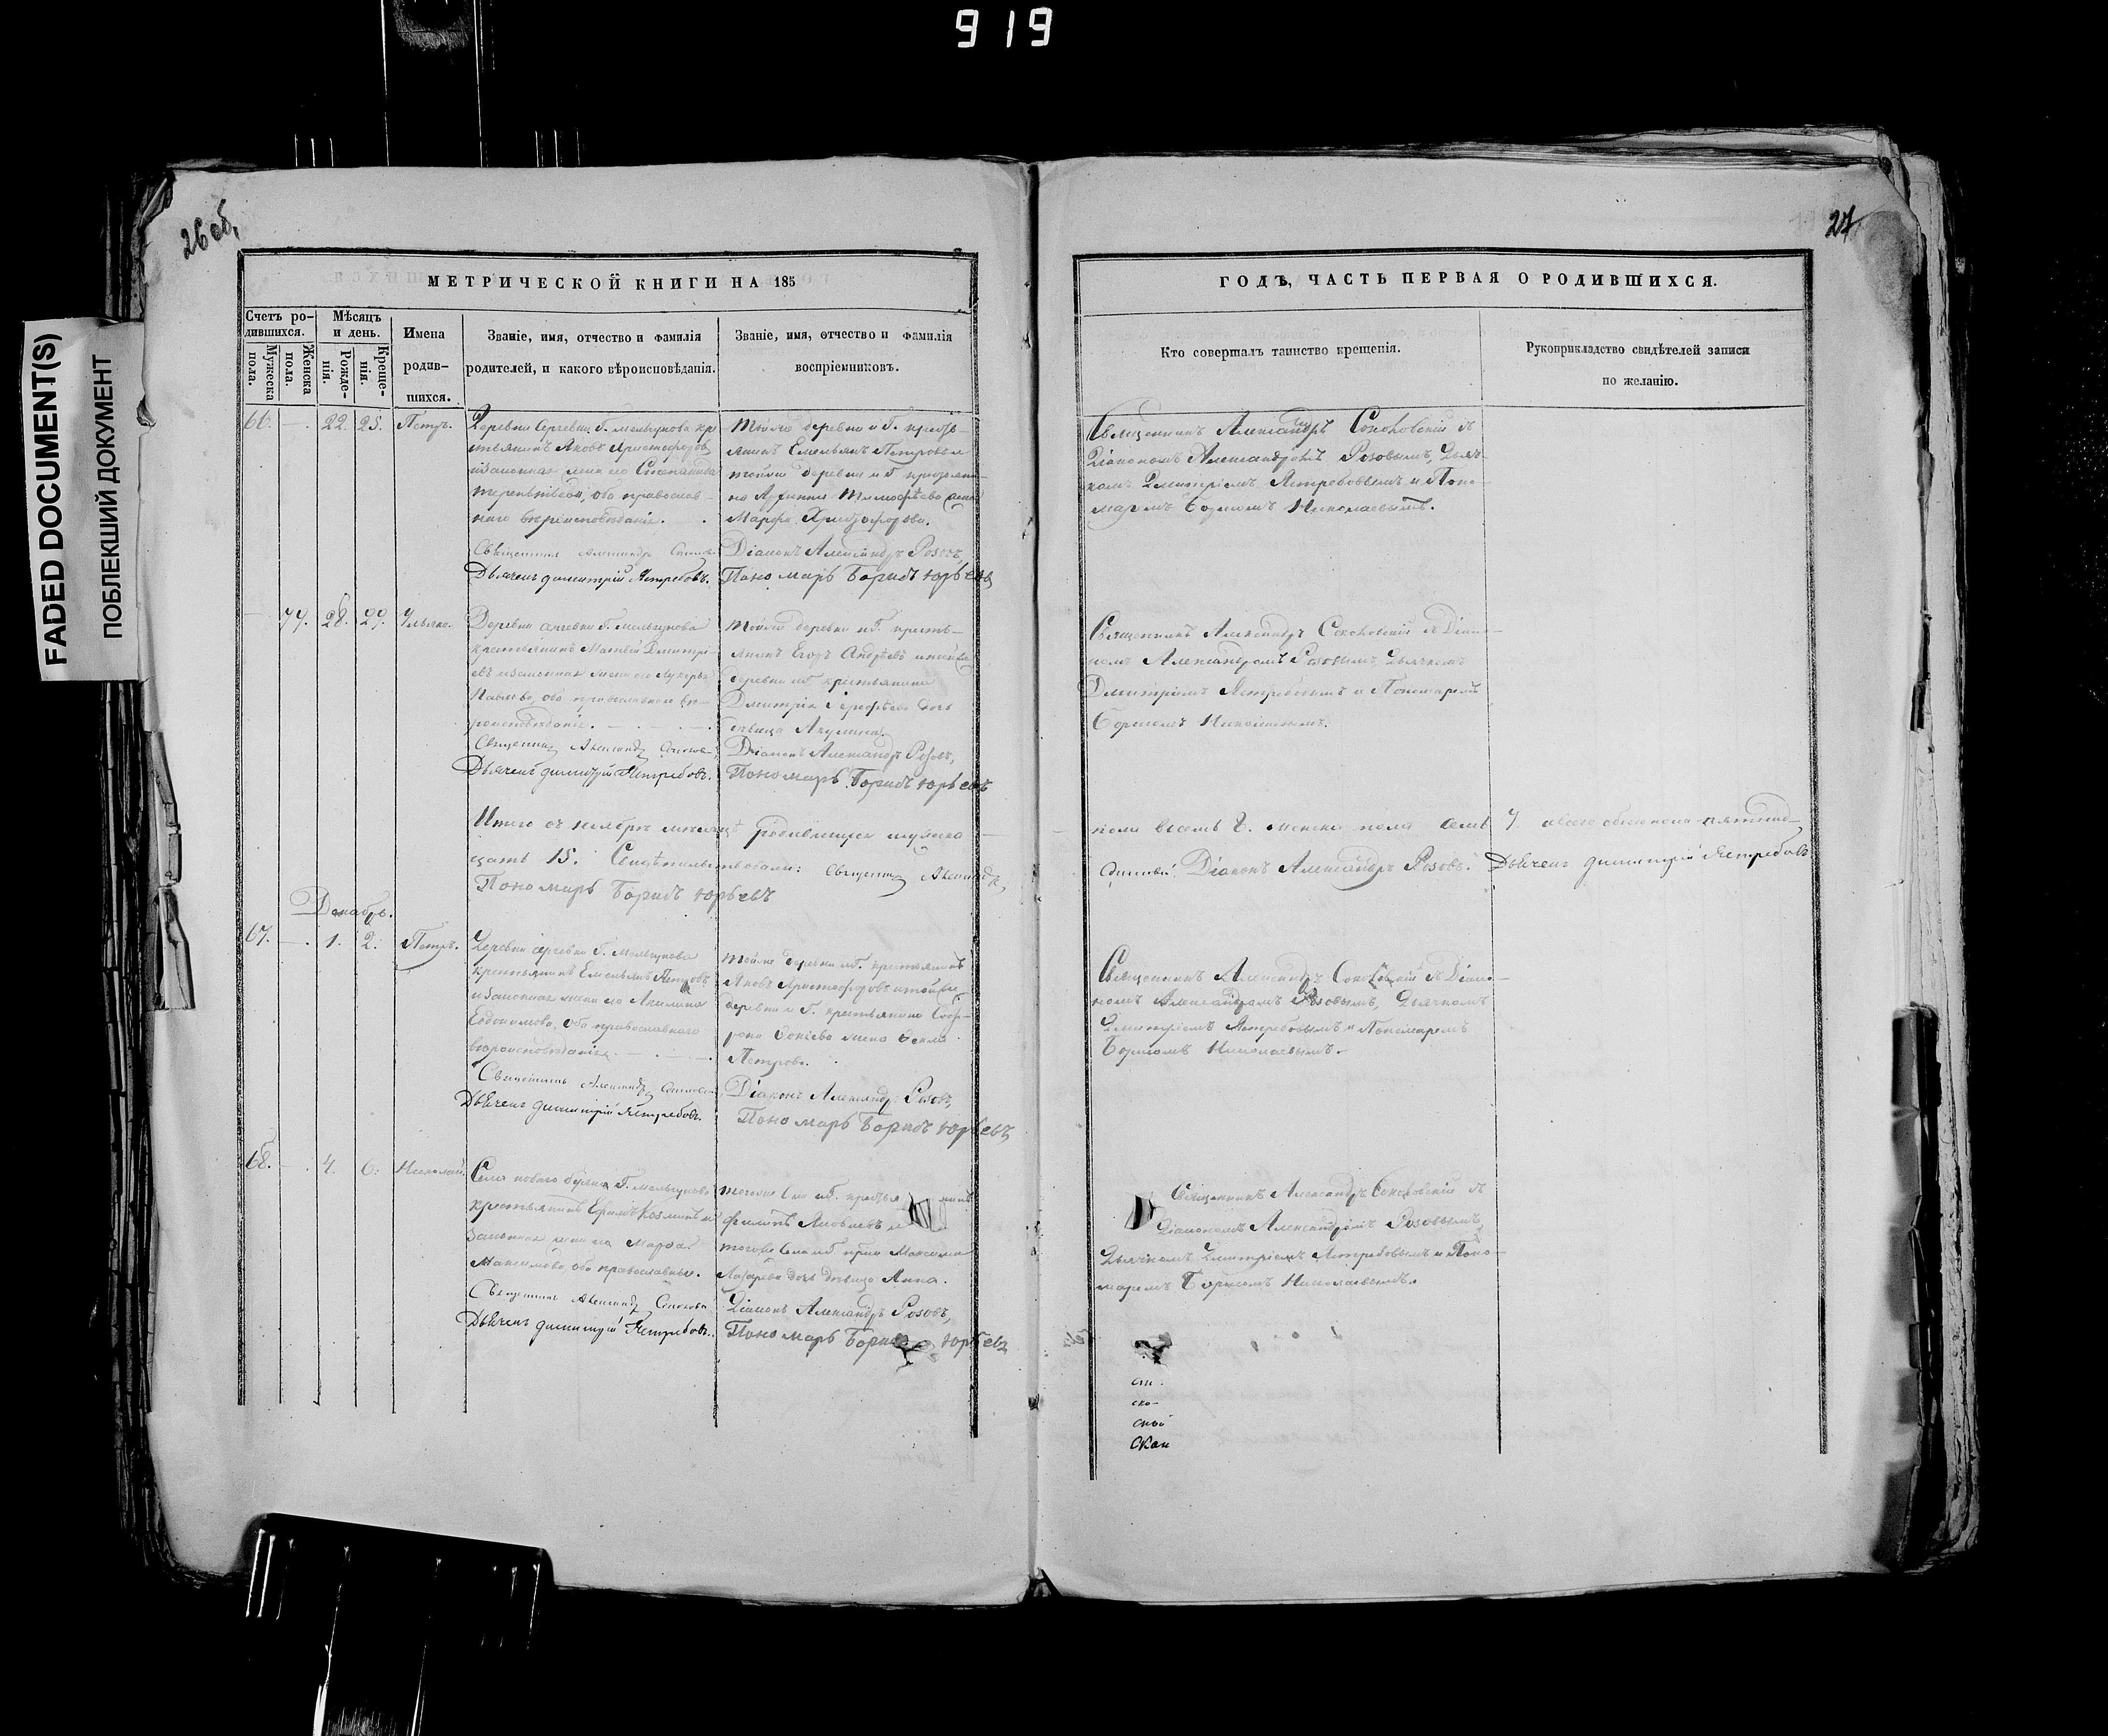 919
FADED DOCUMENT(S)
ПОБЛЕКШИЙ ДОКУМЕНТ
26 об.
МЕТРИЧЕСКОЙ КНИГИ НА 185
Счетъ ро-
дившихся.
Мужеска
пола.
Женска
пола.
Мѣсяцъ
и день.
Рожде-
нія.
Креще-
нія.
Имена
родив-
шихся.
Званіе, имя, отчество и фамилія
родителей, и какого вѣроисповѣданія.
Званіе, имя, отчество и фамилія
воспріемниковъ.
66. — 22. 25. Петръ.
Деревни Сергевки Г. Мельгунова кре
стьянинъ Яковъ Христофоровъ
и законная жена его Степанида
Терентьева, оба православ-
наго вѣроисповѣданія.
Священникъ Александръ
Дьячекъ Димитрій Ястребовъ.
Тойже деревни и Г. кресть-
янинъ Емельянъ Петровъ и
тойже деревни и Г. крестьяни-
на
Марфа Христофорова.
Діаконъ Александръ Розовъ,
Пономарь Борисъ Юрьевъ
— 74. 28. 29. Ульяна.
Деревни Сергевки Г. Мельгунова
крестьянинъ Матвей Дмитрі-
евъ и законная жена его Лукерья
Павлова, оба православнаго вѣ-
роисповѣданія.
Священникъ Александръ
Дьячекъ Димитрій Ястребовъ.
Тойже деревни и Г. кресть-
янинъ Егоръ Андреевъ и тойже
деревни и Г. крестьянина
Дмитрія дочь
девица Акулина.
Діаконъ Александръ Розовъ,
Пономарь Борисъ Юрьевъ
Итого въ ноябрѣ месяцѣ родившихся мужеска
цать 15. Свидѣтельствовали: Священникъ Александръ
Пономарь Борисъ Юрьевъ
Декабрь.
67. — 1. 2. Петръ.
Деревни Сергевки Г. Мельгунова
крестьянинъ Емельянъ Петровъ
и законная жена его Акилина
Евдокимова, оба православнаго
вероисповѣданія.
Священникъ Александръ
Дьячекъ Димитрій Ястребовъ.
Тойже деревни и Г. крестьянинъ
Яковъ Христофоровъ и тойже
деревни и Г. крестьянина Соф-
рона жена Фекла
Петрова.
Діаконъ Александръ Розовъ,
Пономарь Борисъ Юрьевъ
68. — 4. 6. Николай.
Села Г. Мельгунова
крестьянинъ Ефимъ Козминъ и
законная жена его Марфа
Максимова, оба православные.
Священникъ Александръ
Дьячекъ Димитрій Ястребовъ.
тогоже Села и Г. крестья нинъ
Филипъ Яковлевъ и
тогоже Села и Г. Максима
Лазарева дочь девица Анна.
Діаконъ Александръ Розовъ,
Пономарь Борисъ Юрьевъ
27
ГОДЪ, ЧАСТЬ ПЕРВАЯ О РОДИВШИХСЯ.
Кто совершалъ таинство крещенія.
Рукоприкладство свидѣтелей записи
по желанію.
Священникъ Александръ Соколовскій съ
Діакономъ Александромъ Розовымъ, Дьяч-
комъ Димитріемъ Ястребовымъ и Поно-
маремъ Борисомъ Николаевымъ.
Священникъ Александръ Соколовскій съ Діако-
номъ Александромъ Розовымъ, Дьячкомъ
Димитріемъ Ястребовымъ и Пономаремъ
Борисомъ Николаевымъ.
пола восемь 8. женска пола семь 7. обоего пола пятнад-
Діаконъ Александръ Розовъ. Дьячекъ Димитрій Ястребовъ
Священникъ Александръ Соколовскій съ Діако-
номъ Александромъ Розовымъ, Дьячкомъ
Димитріемъ Ястребовымъ и Пономаремъ
Борисомъ Николаевымъ.
Священникъ Александръ Соколовскій съ
Діакономъ Александромъ Розовымъ,
Дьячкомъ Димитріемъ Ястребовымъ и Поно-
маремъ Борисомъ Николаевымъ.